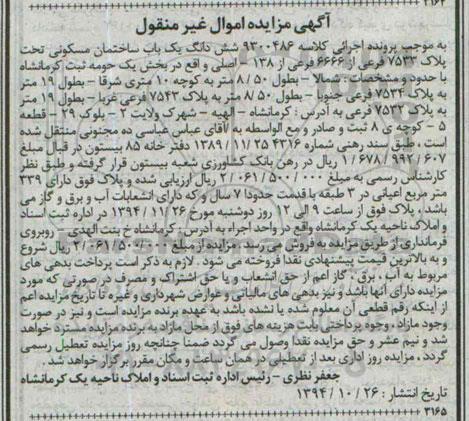 ۳۱۶۴
آگهی مزایده اموال غیر منقول
به موجب پرونده اجرائی کلاسه ۹۳۰۰۴۸۶ شش دانگ یک باب ساختمان مسکونی تحت
پلاک ۷۵۳۳ فرعی از ۶۶۶۶ فرعی از ۱۳۸ – اصلی و اقع در بخش یک حومه ثبت کرمانشاه
با حدود و مشخصات : شمالا – بطول ۸/۵۰ متر به کوچه ۱۰ متری شرقا – بطول ۱۹ متر
به پلاک ۷۵۳۴ فرعی جنوبا – بطول ۸/۵۰ متر به پلاک ۷۵۴۳ فرعی غربا – بطول ۱۹ متر
به پلاک ۷۵۳۲ فرعی به آدرس : کرمانشاه – الهیه – شهرک ولایت ۲ – بلوک ۲۹ – قطعه
۵ – کوچه ی ۸ ثبت و صادر و مع الواسطه به آقای عباس عباسی ده مجنونی منتقل شده
است ، طبق سند رهنی شماره ۴۳۱۶ ۲۵ / ۱۱ / ۱۳۸۹ دفتر خانه ۸۵ بیستون در قبال مبلغ
۶۰۷ / ۹۹۲ / ۶۷۸ / ۱ ریال در رهن بانک کشاورزی شعبه بیستون قرار گرفته و طبق نظر
کارشناس رسمی به مبلغ ۰۰۰ / ۵۰۰ / ۰۶۱ / ۲ ریال ارزیابی شده و پلاک فوق دارای ۳۳۹
متر مربع اعیانی در ۳ طبقه با قدمت حدودا ۷ سال و که دارای انشعابات آب و برق و گاز می
باشد ، پلاک فوق از ساعت ۹ الی ۱۲ روز دوشنبه مورخ ۲۶ / ۱۱ / ۱۳۹۴ در اداره ثبت اسناد
و املاک ناحیه یک کرمانشاه واقع در واحد اجراء به آدرس : کرمانشاه خ بنت الهدی – روبروی
فرمانداری از طریق مزایده به فروش می رسد . مزایده از مبلغ ۰۰۰ / ۵۰۰ / ۰۶۱ / ۲ ریال شروع
و به بالاترین قیمت پیشنهادی نقدا فروخته می شود . لازم به ذکر است پرداخت بدهی های
مربوط به آب ، برق ، گاز اعم از حق انشعاب و یا حق اشتراک و مصرف در صورتی که مورد
مزایده دارای آنها باشد و نیز بدهی های مالیاتی و عوارض شهرداری و غیره تا تاریخ مزایده اعم
از اینکه رقم قطعی آن معلوم شده یا نشده باشد به عهده برنده مزایده است و نیز در صورت
وجود مازاد ، وجوه پرداختی بابت هزینه های فوق از محل مازاد به برنده مزایده مسترد خواهد
شد و نیم عشر و حق مزایده نقدا وصول می گردد ضمنا چنانچه روز مزایده تعطیل رسمی
گردد ، مزایده روز اداری بعد از تعطیلی در همان ساعت و مکان مقرر برگزار خواهد شد .
جعفر نظری – رئیس اداره ثبت اسناد و املاک ناحیه یک کرمانشاه
تاریخ انتشار : ۲۶ / ۱۰ / ۱۳۹۴
۳۱۶۵